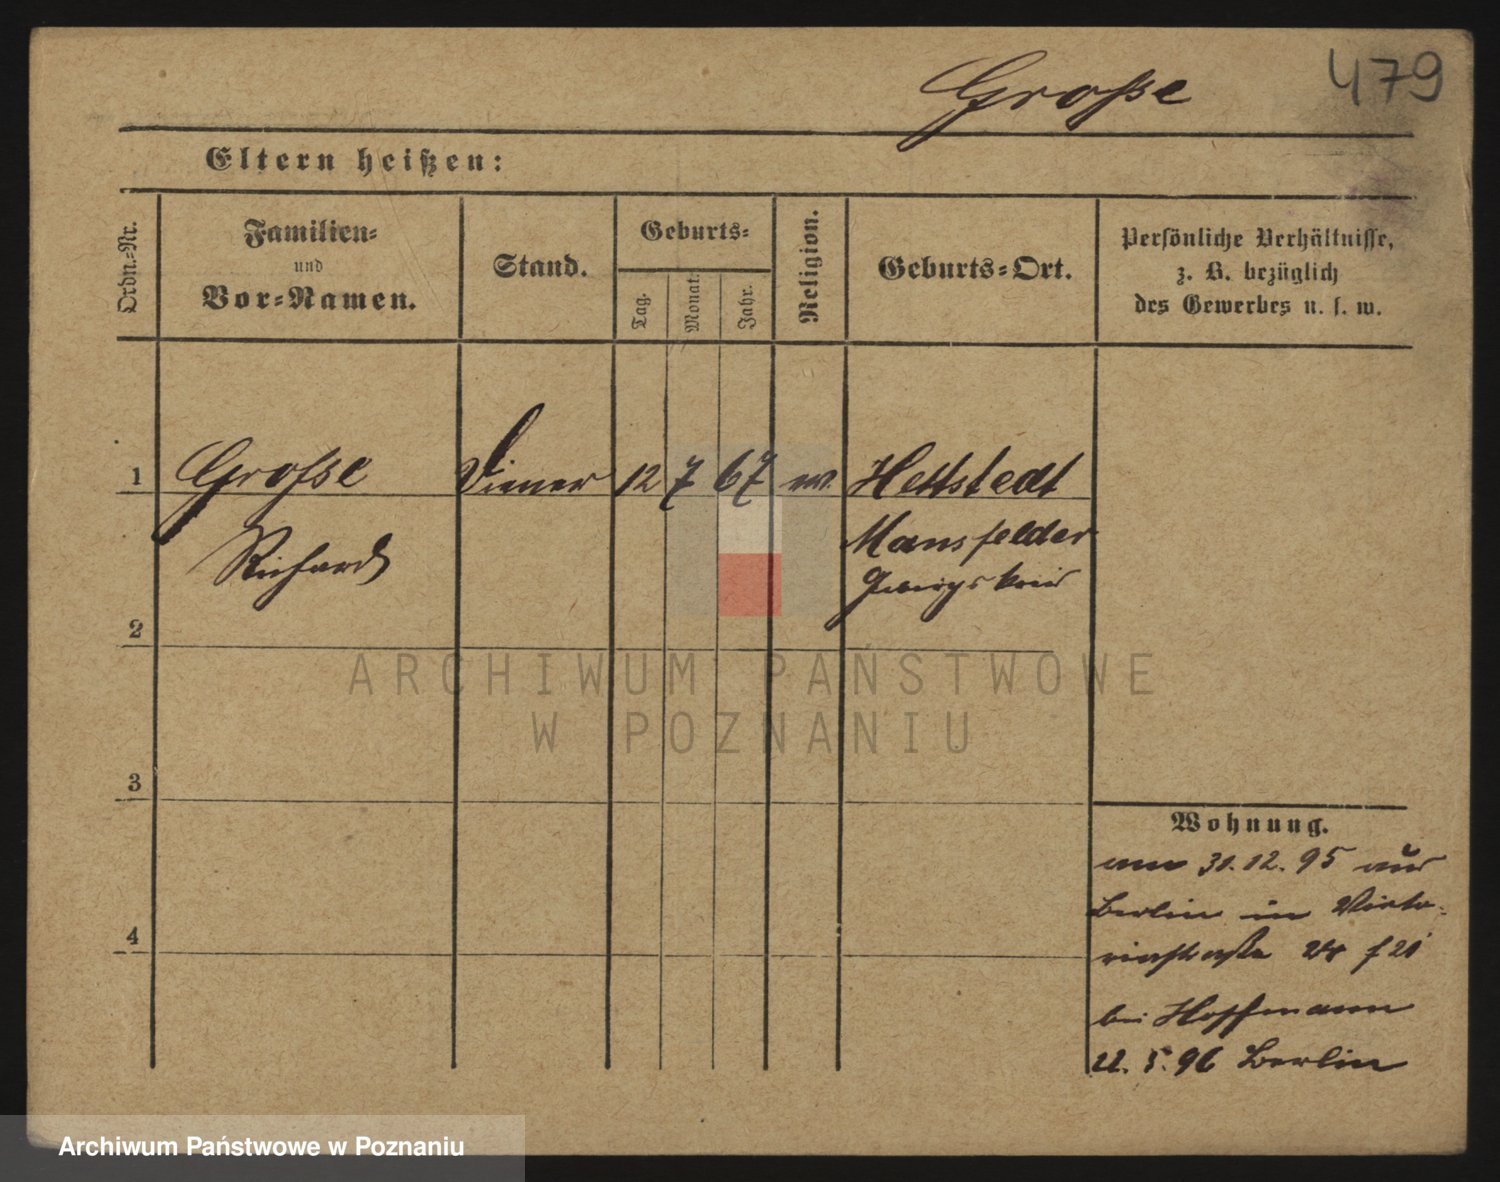 479
Große
Eltern heißen:
Ordn.-Nr.
Familien-
und
Vor-Namen.
Stand.
Geburts-
Tag.
Monat.
Jahr.
Religion.
Geburts-Ort.
Persönliche Verhältnisse,
z. B. bezüglich
des Gewerbes u. s. w.
1 Große Diener 12 7 67 ev. Hettstedt
Richard Mansfelder
Gebirgskreis
2
ARCHIWUM PAŃSTWOWE
W POZNANIU
3
Wohnung.
am 31.12.95 aus
Berlin in Victo-
riastraße
4
bei Hoffmann
22.5.96 Berlin
Archiwum Państwowe w Poznaniu